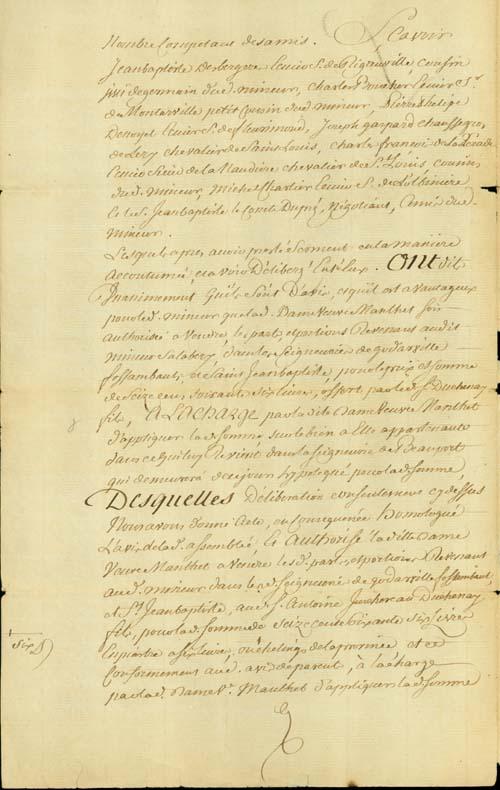 Nombre Competant des amis. Scavoir
Jean baptiste Desbergere Ecuier Sr. de Rigauville cousin
issu de germain dud. mineur, charles Boucher Ecuier Sr.
de Montarville petit Cousin dud mineur, Pierre philipe
Denoyel Ecuier Sr. de fleurimond, Joseph gaspard chaussegros
de Lery chevalier de Saint Louis, charles francois
Ecuier Sieur de la Naudiere chevalier de St. Louis cousins
dud. mineur, michel Chartier Ecuier Sr. de Lotbiniere
Et le Sr. Jean baptiste le Comte Dupré, Négotiant, Amis dud
mineur.
Lesquels apres avoir presté serment en la maniere
accoutumée, et avoir Déliberé Entr'eux. Ont dit
Unanimement Qu'ils sont D'avis, et qu'il est avantageux
pour led. mineur que lad. Dame veuve Manthet soit
authorisée a vendre les parts et portions Revenant audit
mineur Salabery, dans les Seigneuries de godarville
fossambault, et de Saint Jean baptiste, pour le prix et somme
de Seize cens soixante six livres, offert par led. Sr. Duchenay
fils, A LA CHARGE par la dite Dame veuve Manthet
d'appliquer lad. somme sur le bien a Elle appartenant
dans ce qui luy Revient dans la Seigneurie de Beauport
qui demeurera de ce jour hypotequé pour lad. somme
Desquelles Déliberation consentement cy dessus
Nous avons donné Acte, en consequence Homologué
L'avis de lad. assemblée Et Authorisé la ditte Dame
Veuve Manthet a vendre lesd. parts et portions Revenant
aud. mineur dans lesd. Seigneuries de godarville fossambault,
et St. Jean baptiste, aud. Sr. Antoine Juchereau Duchenay
fils, pour lad. somme de Seize cents soixante six livres
Conformement aud. avis de parent, à la charge
par lad. Dame Ve. Manthet d'appliquer lad. somme